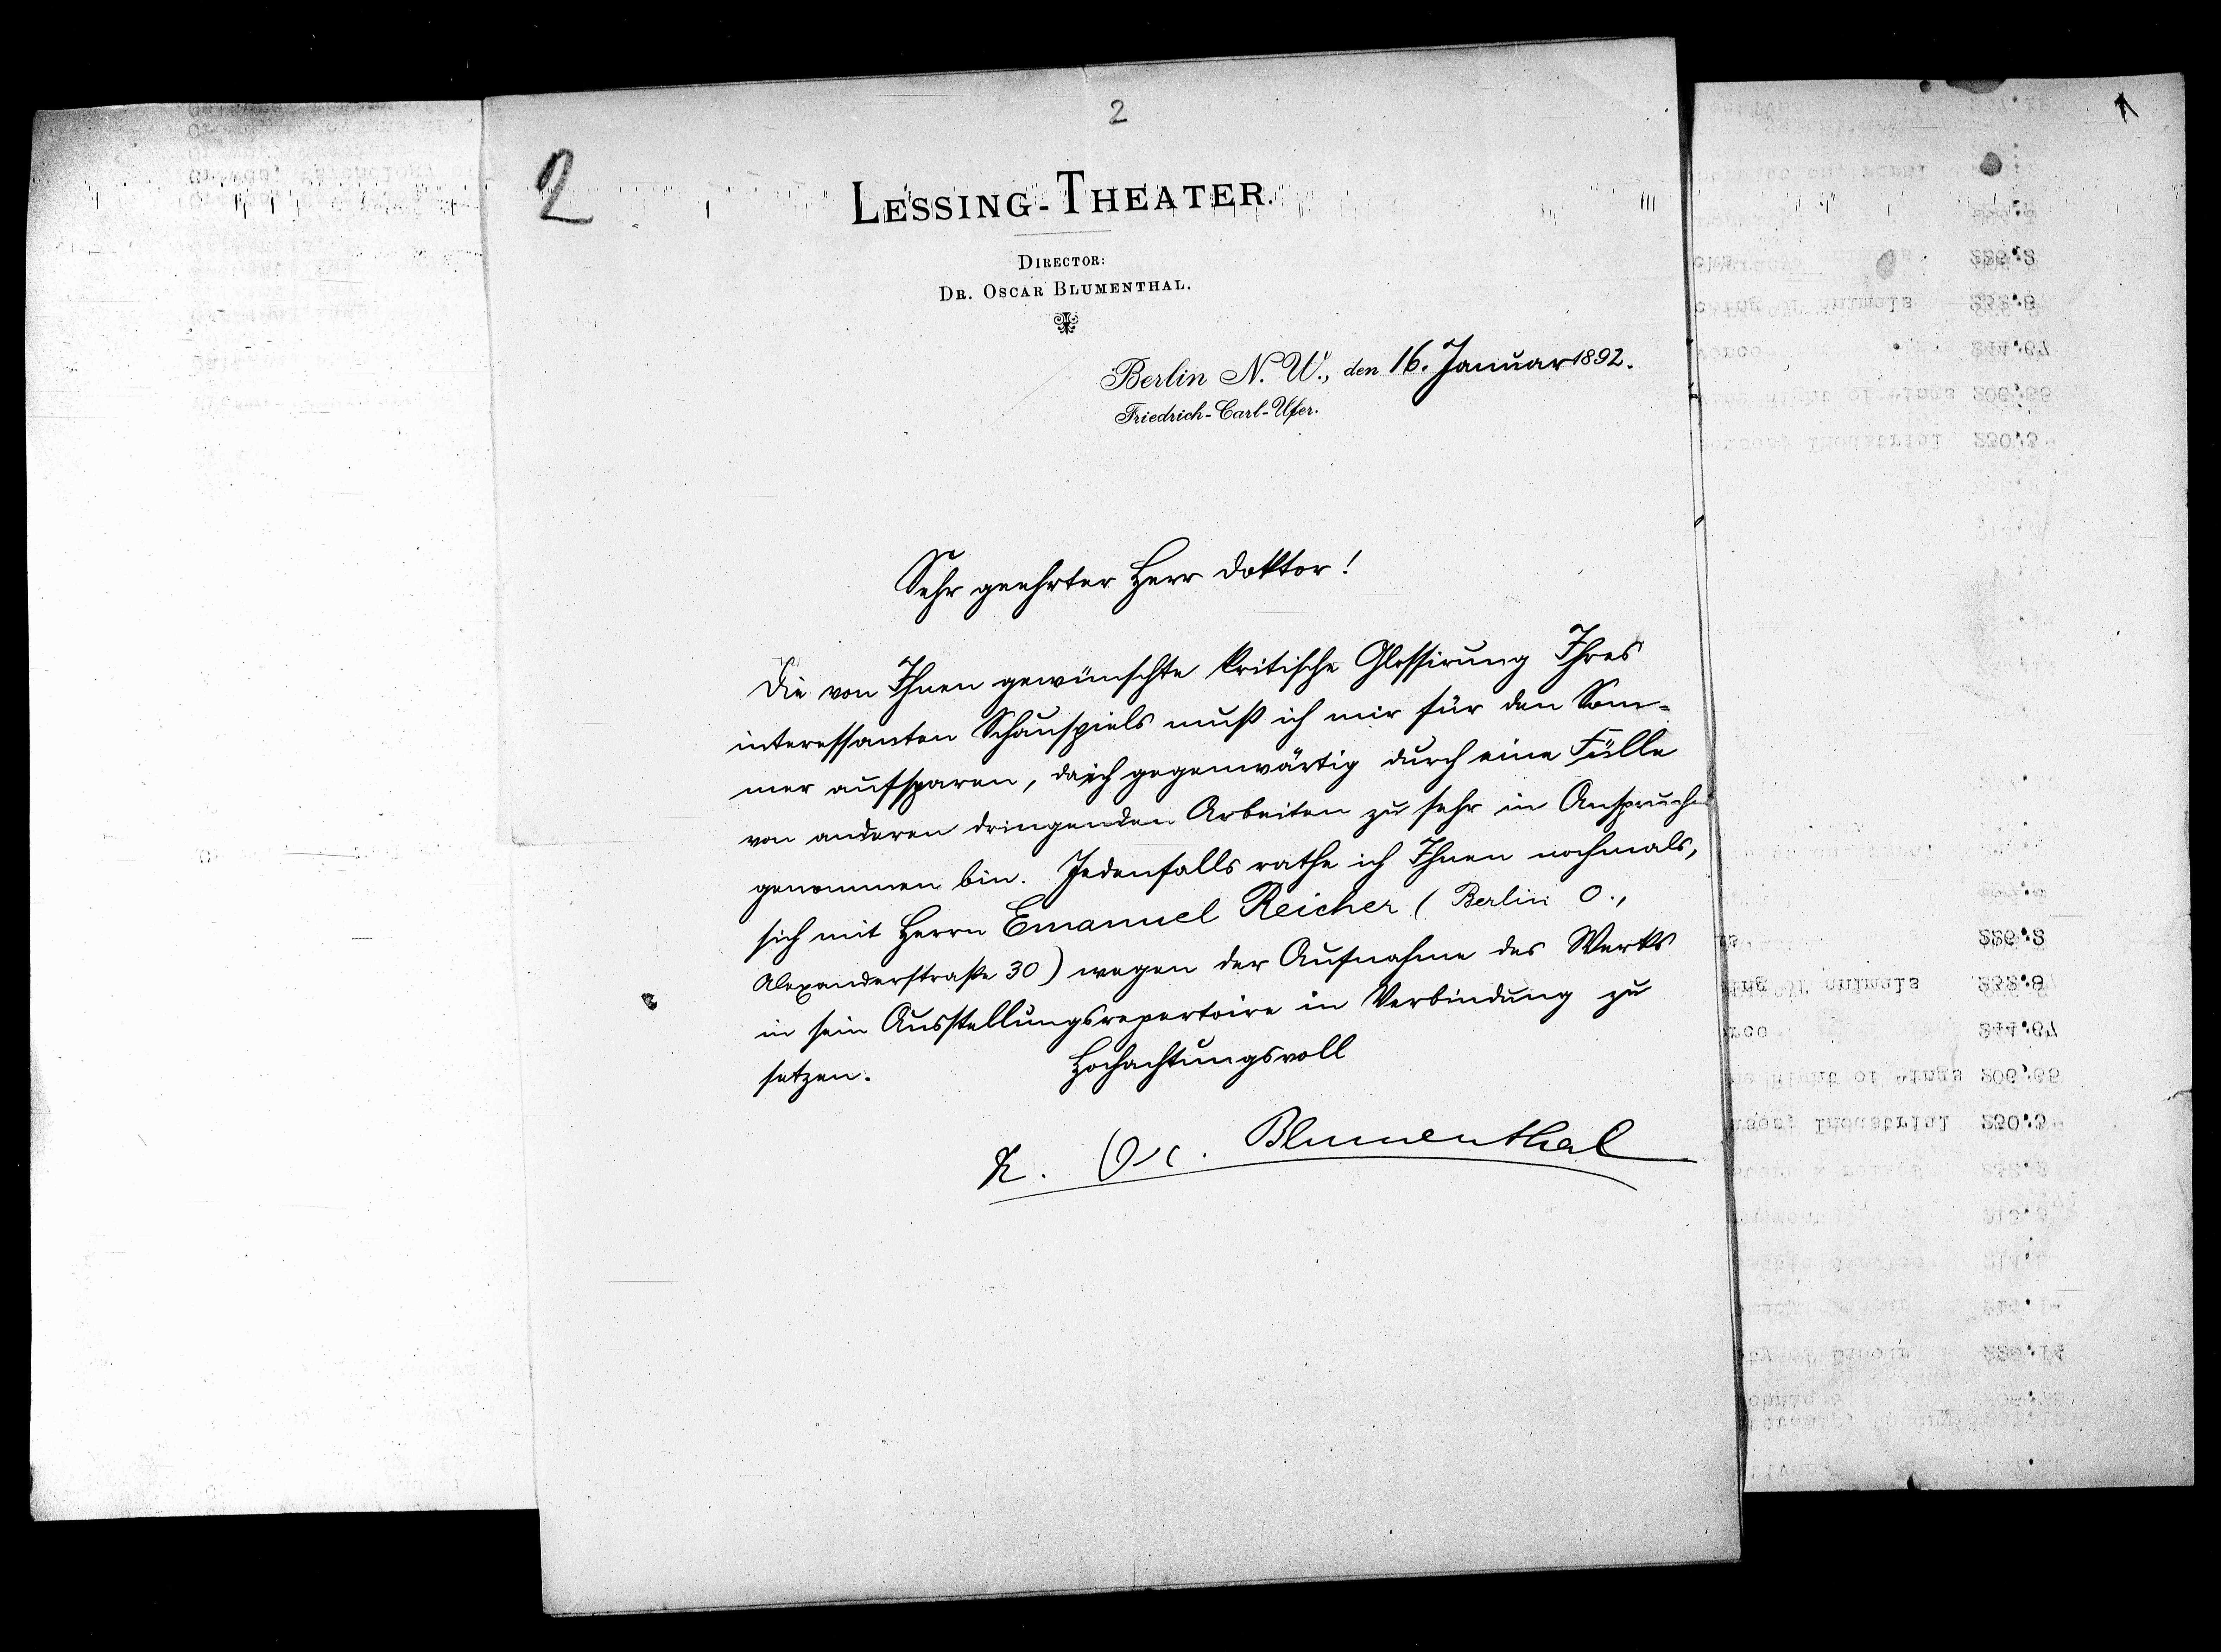 2
2
LESSING-THEATER.
DIRECTOR:
DR. OSCAR BLUMENTHAL.
Berlin N. W., den 16. Januar 1892.
Friedrich-Carl-Ufer.
Sehr geehrter Herr Doktor!
Die von Ihnen gewünschte kritische Glossirung Ihres
interessanten Schauspiels muß ich mir für den Som-
mer aufsparen, da ich gegenwärtig durch eine Fülle
von anderen dringenden Arbeiten zu sehr in Anspruch
genommen bin. Jedenfalls rathe ich Ihnen nochmals,
sich mit Herrn Emanuel Reicher (Berlin O.,
Alexanderstraße 30) wegen der Aufnahme des Werks
in sein Ausstellungsrepertoire in Verbindung zu
setzen.
Hochachtungsvoll
Osc. Blumenthal